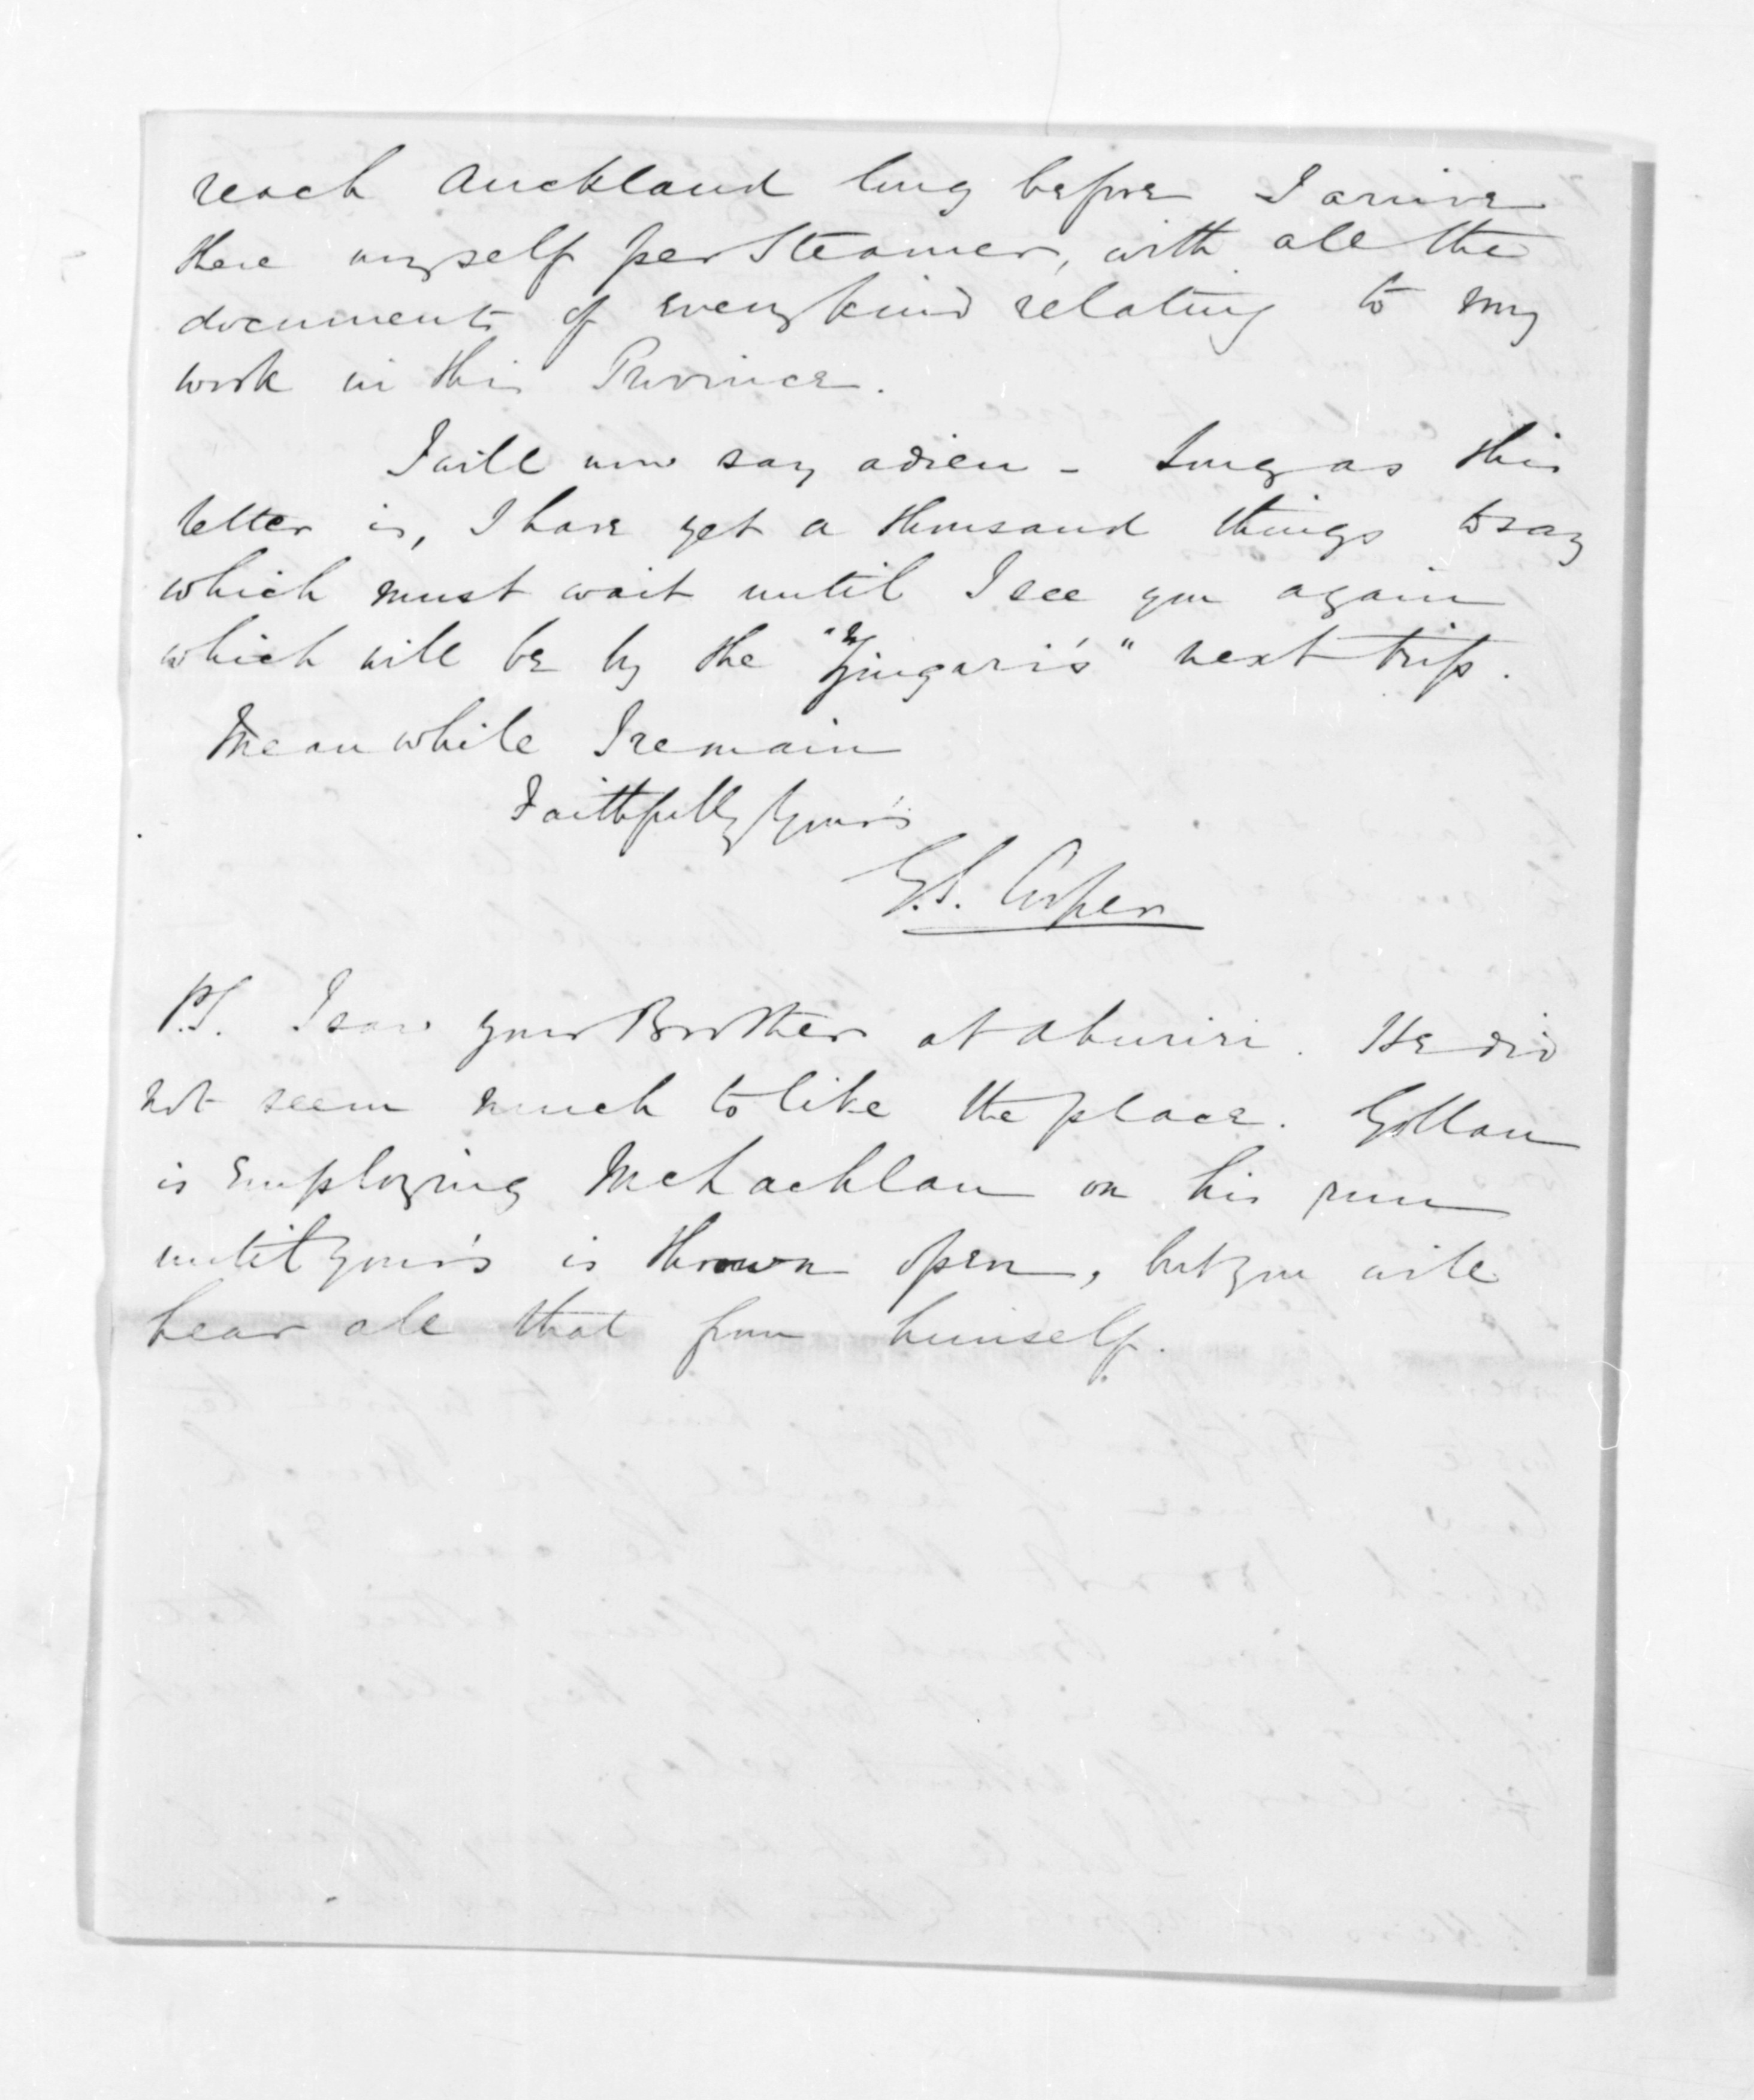 reach Auckland long before I arrive
there myself per Steamer, with all the
documents of every kind relating to my
work in this Province.
I will now say adieu - Long as this
letter is, I have yet a thousand things to say
which must wait until I see you again
which will be by the "Zingari's" next trip.
Meanwhile I remain
Faithfully Your's
G.S. Cooper
P.S. I saw your Brother at Ahuriri. He did
not seem much to like the place. Gollan
is employing McLachlan on his run
until your's is thrown open, but you will
hear all that from himself.